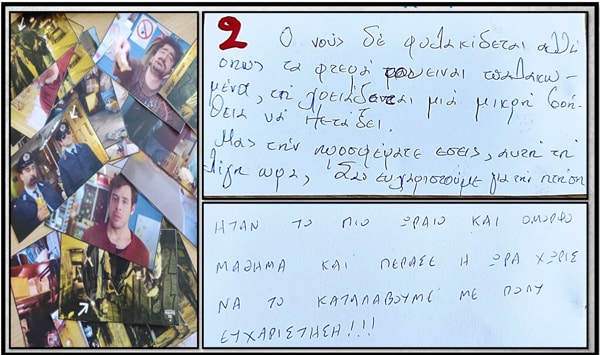 2
Ο νούς δέ φυλακίδεται αλλά
όπως τα φτερά που είναι τσαλακω-
μένα, τη χρειάδεται μιά μικρή βοή-
θεια νά πετάξει.
Μας την προσφέρατε εσείς, αυτή τη
λίγη ώρα, Σας ευχαριστούμε για την πτήση
ΗΤΑΝ ΤΟ ΠΙΟ ΩΡΑΙΟ ΚΑΙ ΟΜΟΡΦΟ
ΜΑΘΗΜΑ ΚΑΙ ΠΕΡΑΣΕ Η ΩΡΑ ΧΩΡΙΣ
ΝΑ ΤΟ ΚΑΤΑΛΑΒΟΥΜΕ ΜΕ ΠΟΛΥ
ΕΥΧΑΡΙΣΤΗΣΗ!!!